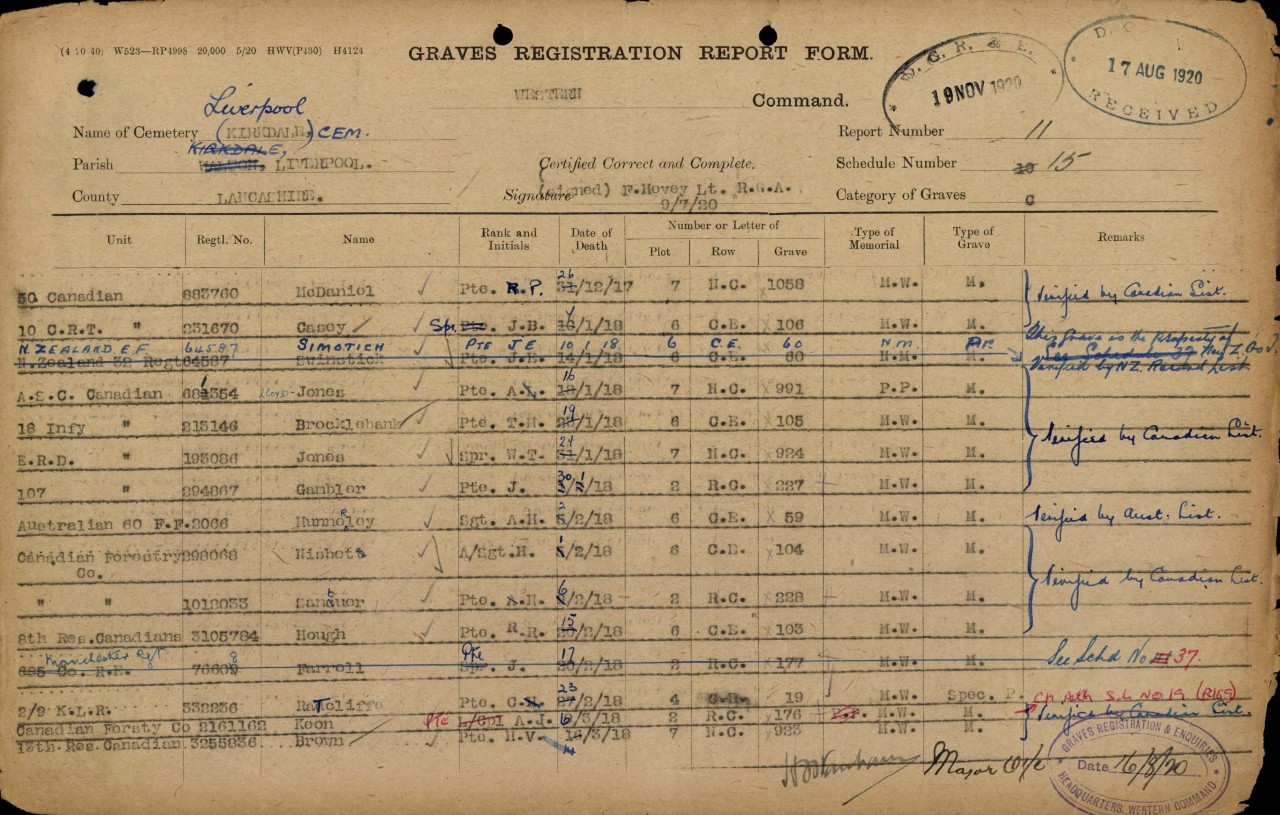 (4 10 40) W523—RP4998 20,000 5/20 HWV(P430) H4124
GRAVES REGISTRATION REPORT FORM.
WESTERN Command.
19 NOV 1920
17 AUG 1920
RECEIVED
Liverpool
Name of Cemetery (KIRKDALE) CEM.
Report Number 11
KIRKDALE,
Parish WALTON, LIVERPOOL.
Certified Correct and Complete.
Schedule Number 10 15
County LANCASHIRE.
Signature (Signed) F.Hovey Lt. R.G.A.
9/7/20
Category of Graves C
Unit Regtl. No. Name Rank and Initials Date of Death Number or Letter of Plot Row Grave Type of Memorial Type of Grave Remarks
50 Canadian 883760 McDaniel Pte. R.P. 26 31/12/17 7 N.C. 1058 M.W. M. Verified by Canadian List.
10 C.R.T. " 231670 Casey Spr. Pte. J.B. /1/18 6 C.E. 106 M.W. M. This Grave is the property of
N. ZEALAND E F 64587 SIMOTICH PTE J E 10 1 18 6 C.E. 60 N M See Schedule 37
N.Zealand 32 Regt 64587 Swinstick Pte. J.E. 14/1/18 6 C.E. 60 N.M. M. Verified by N.Z. Record List
A.S.C. Canadian 681354 Lloyd-Jones Pte. A. 16 /1/18 7 N.C. 991 P.P. M.
18 Infy " 213146 Brocklebank Pte. T.H. 19 /1/18 6 C.E. 105 M.W. M. Verified by Canadian List.
E.R.D. " 193086 Jones Spr. W.T. 24 31/1/18 7 N.C. 924 M.W. M.
107 " 294867 Gambler Pte. J. 30 /1/18 2 R.C. 227 M.W. M.
Australian 60 F.F. 2066 Munnroley Sgt. A.H. 3 5/2/18 6 C.E. 59 M.W. M. Verified by Aust. List.
Canadian Forestry Co. 298068 Nisbett A/Sgt. H. /2/18 6 C.E. 104 M.W. M.
Verified by Canadian List.
" " 1012033 Pte. H. 6 /2/18 2 R.C. 228 M.W. M.
8th Res. Canadians 3105784 Hough Pte. R.R. 15 20/2/18 6 C.E. 103 M.W. M.
Manchester Rgt 8 Pte 17 See Schd No 37.
685 Co. R.E. 7660 Farroll Spr. J. 20/2/18 2 R.C. 177 M.W. M.
2/9 K.L.R. 332236 Ratcliffe Pte. C. 23 27/2/18 4 C.E. 19 M.W. Spec. P. Ch Auth S.L No 19 (R169)
Canadian Forsty Co 2161162 Koon Pte L/Cpl A.J. 6/3/18 2 R.C. 176 M.W. M. Verified by Canadian List.
13th Res. Canadian 3255836 Brown Pte. H.V. 14 16/3/18 7 N.C. 923 M.W. M.
Major
GRAVES REGISTRATION & ENQUIRIES
Date 16/8/20
HEADQUARTERS, WESTERN COMMAND